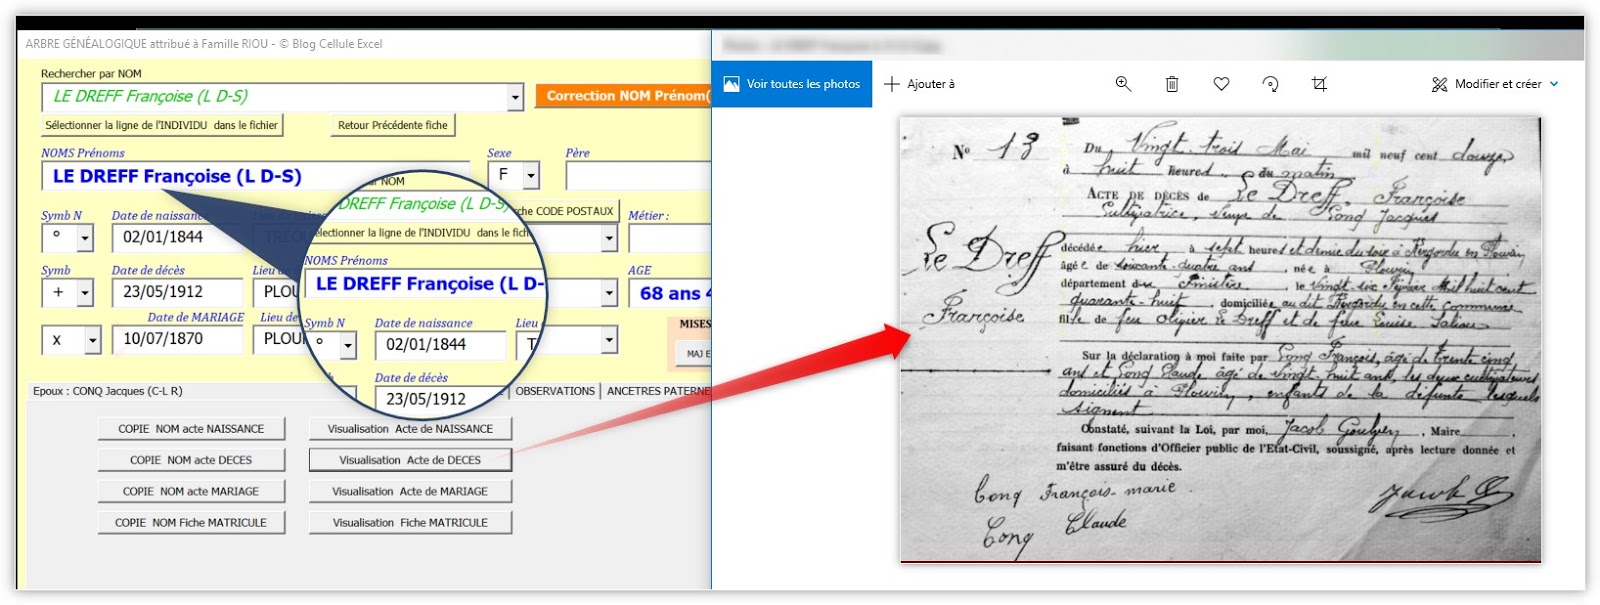 ARBRE GÉNÉALOGIQUE attribué à Famille RIOU - © Blog Cellule Excel
Rechercher par NOM
LE DREFF Françoise (L D-S)
Correction NOM Prénom(
Sélectionner la ligne de l'INDIVIDU dans le fichier
Retour Précédente fiche
NOMS Prénoms
Sexe
Père
LE DREFF Françoise (L D-S)
F
Symb N
Date de naissance
CODE POSTAUX
Métier :
°
02/01/1844
Symb
Date de décès
Lieu de
AGE
+
23/05/1912
PLOU
68 ans 4
Date de MARIAGE
Lieu de
MISES
x
10/07/1870
PLOUI
MAJ E
Epoux : CONQ Jacques (C-L R)
OBSERVATIONS
ANCETRES PATERNE
COPIE NOM acte NAISSANCE
Visualisation Acte de NAISSANCE
COPIE NOM acte DECES
Visualisation Acte de DECES
COPIE NOM acte MARIAGE
Visualisation Acte de MARIAGE
COPIE NOM Fiche MATRICULE
Visualisation Fiche MATRICULE
NOM
DREFF Françoise (L D-S)
électionner la ligne de l'INDIVIDU dans le fichi
NOMS Prénoms
LE DREFF Françoise (L D-
Symb N
Date de naissance
Lieu
°
02/01/1844
T
Date de décès
23/05/1912
Voir toutes les photos
Ajouter à
Modifier et créer
N° 13
Du Vingt-trois Mai mil neuf cent douze,
à huit heures, du matin
ACTE DE DÉCÈS de Le Dreff, Françoise
Cultivatrice, veuve de Conq Jacques
Le Dreff
Françoise
décédée hier, à sept heures et demie du soir à Kergordu en Plouvien
âgée de soixante-quatre ans, née à Plouvien
département du Finistère, le vingt-six Février Mil huit cent
quarante-huit, domiciliée au dit Kergordu en cette commune
fille de feu Olivier Le Dreff et de feue Louise Saliou
Sur la déclaration à moi faite par Conq François, âgé de trente cinq
ans et Conq Claude âgé de vingt-huit ans, les deux cultivateurs
domiciliés à Plouvien, enfants de la défunte lesquels
signent
Constaté, suivant la Loi, par moi, Jacob Goulven, Maire,
faisant fonctions d'Officier public de l'Etat-Civil, soussigné, après lecture donnée et
m'être assuré du décès.
Conq François-marie
Conq Claude
Jacob G